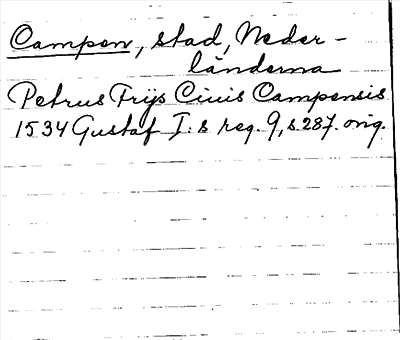 Campen, stad, Neder-
länderna
Petrus Frijs Civis Campensis
1534 Gustaf I:s reg. 9, s. 287. orig.